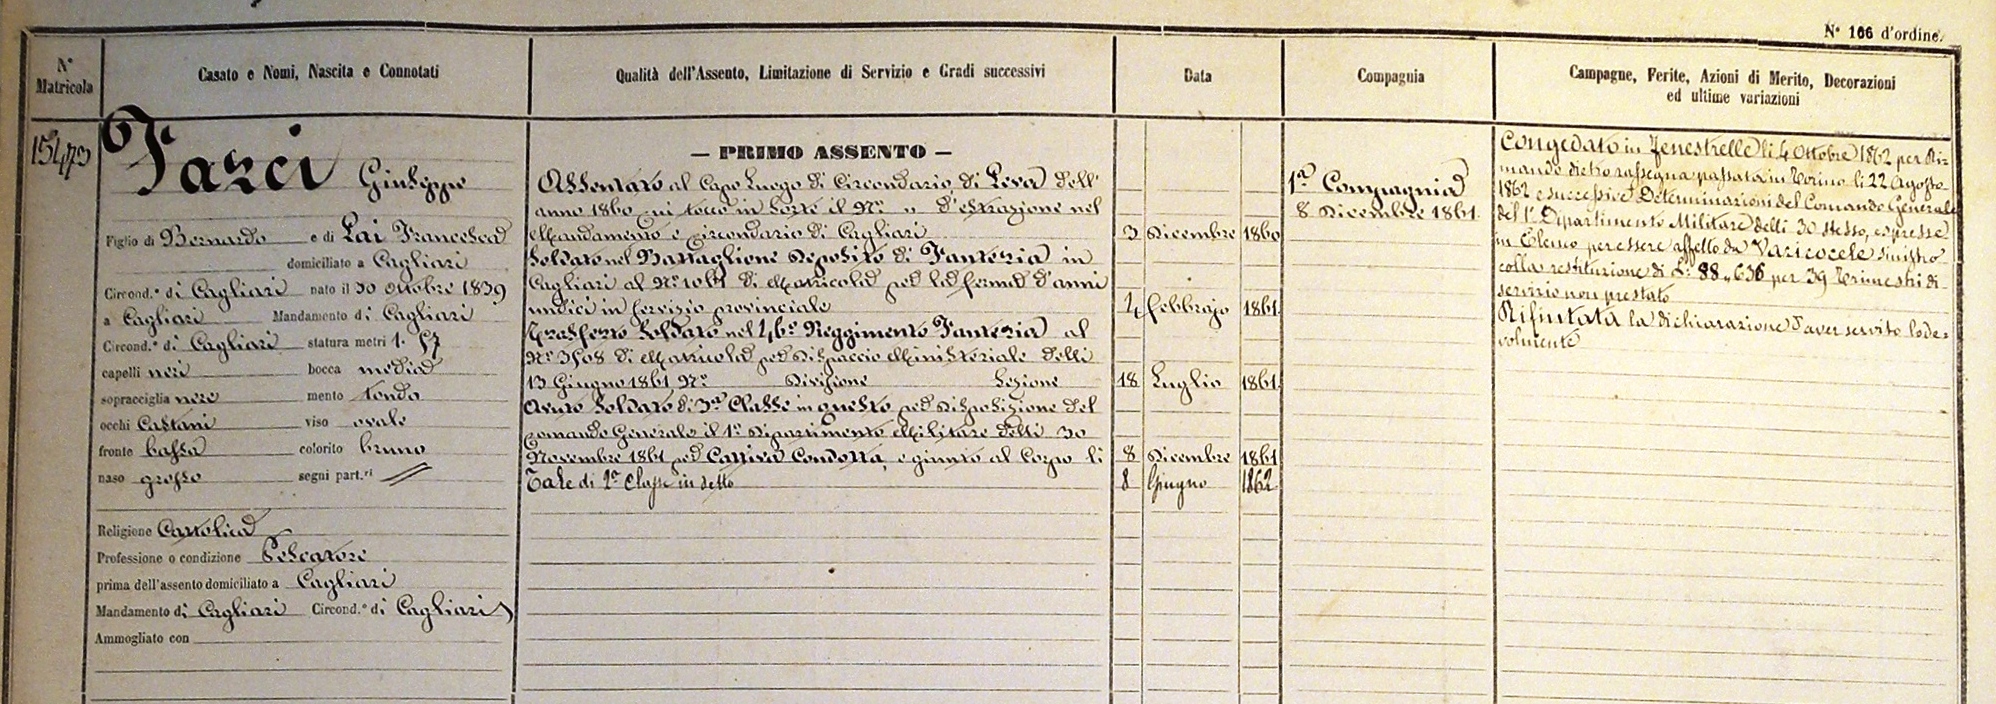 N° 106 d'ordine.
N° Matricola
Casato e Nomi, Nascita e Connotati
Qualità dell'Assento, Limitazione di Servizio e Gradi successivi
Data
Compagnia
Campagne, Ferite, Azioni di Merito, Decorazioni
ed ultime variazioni
15473
Farci Giuseppe
Figlio di Bernardo e di Lai Francesca
domiciliato a Cagliari
Circond.° di Cagliari nato il 30 Ottobre 1839
a Cagliari Mandamento di Cagliari
Circond.° di Cagliari statura metri 1. 57
capelli neri bocca media
sopracciglia nere mento tondo
occhi Castani viso ovale
fronte bassa colorito bruno
naso grosso segni part.ri //
Religione Cattolica
Professione o condizione Pescatore
prima dell'assento domiciliato a Cagliari
Mandamento di Cagliari Circond.° di Cagliari
Ammogliato con
— PRIMO ASSENTO —
Assentato al Capo Luogo di Circondario di Leva dell'
anno 1860 cui toccò in sorte il N° " d'estrazione nel
Mandamento e Circondario di Cagliari 3 Dicembre 1860
Soldato nel Battaglione Deposito di Fanteria in
Cagliari al N° di Matricola per la ferma d'anni
undici in servizio provinciale 4 Febbrajo 1861
Trasferto Soldato nel 46° Reggimento Fanteria al
N° 3508 di Matricola per Dispaccio Ministeriale delli
13 Giugno 1861 N° Divisione Sezione 18 Luglio 1861
Avuto Soldato di 3ª Classe in questo per Disposizione del
Comando Generale il 1° Dipartimento Militare delli 30
Novembre 1861 per Cattiva Condotta, e giunto al Corpo li 8 Dicembre 1861
Tale di 2ª Classe in detto 8 Giugno 1862
1ª Compagnia
8 Dicembre 1861
Congedato in Fenestrelle li 4 Ottobre 1862 per Ri-
mando dietro rassegna passata in Torino li 22 Agosto
1862 e successive Determinazioni del Comando Generale
del 1° Dipartimento Militare delli 30 stesso, espresse
in Elenco per essere affetto da Varicocele sinistro
colla restituzione di L: 88,636 per 39 Trimestri di
servizio non prestato
Rifiutata la dichiarazione d'aver servito lode-
volmente